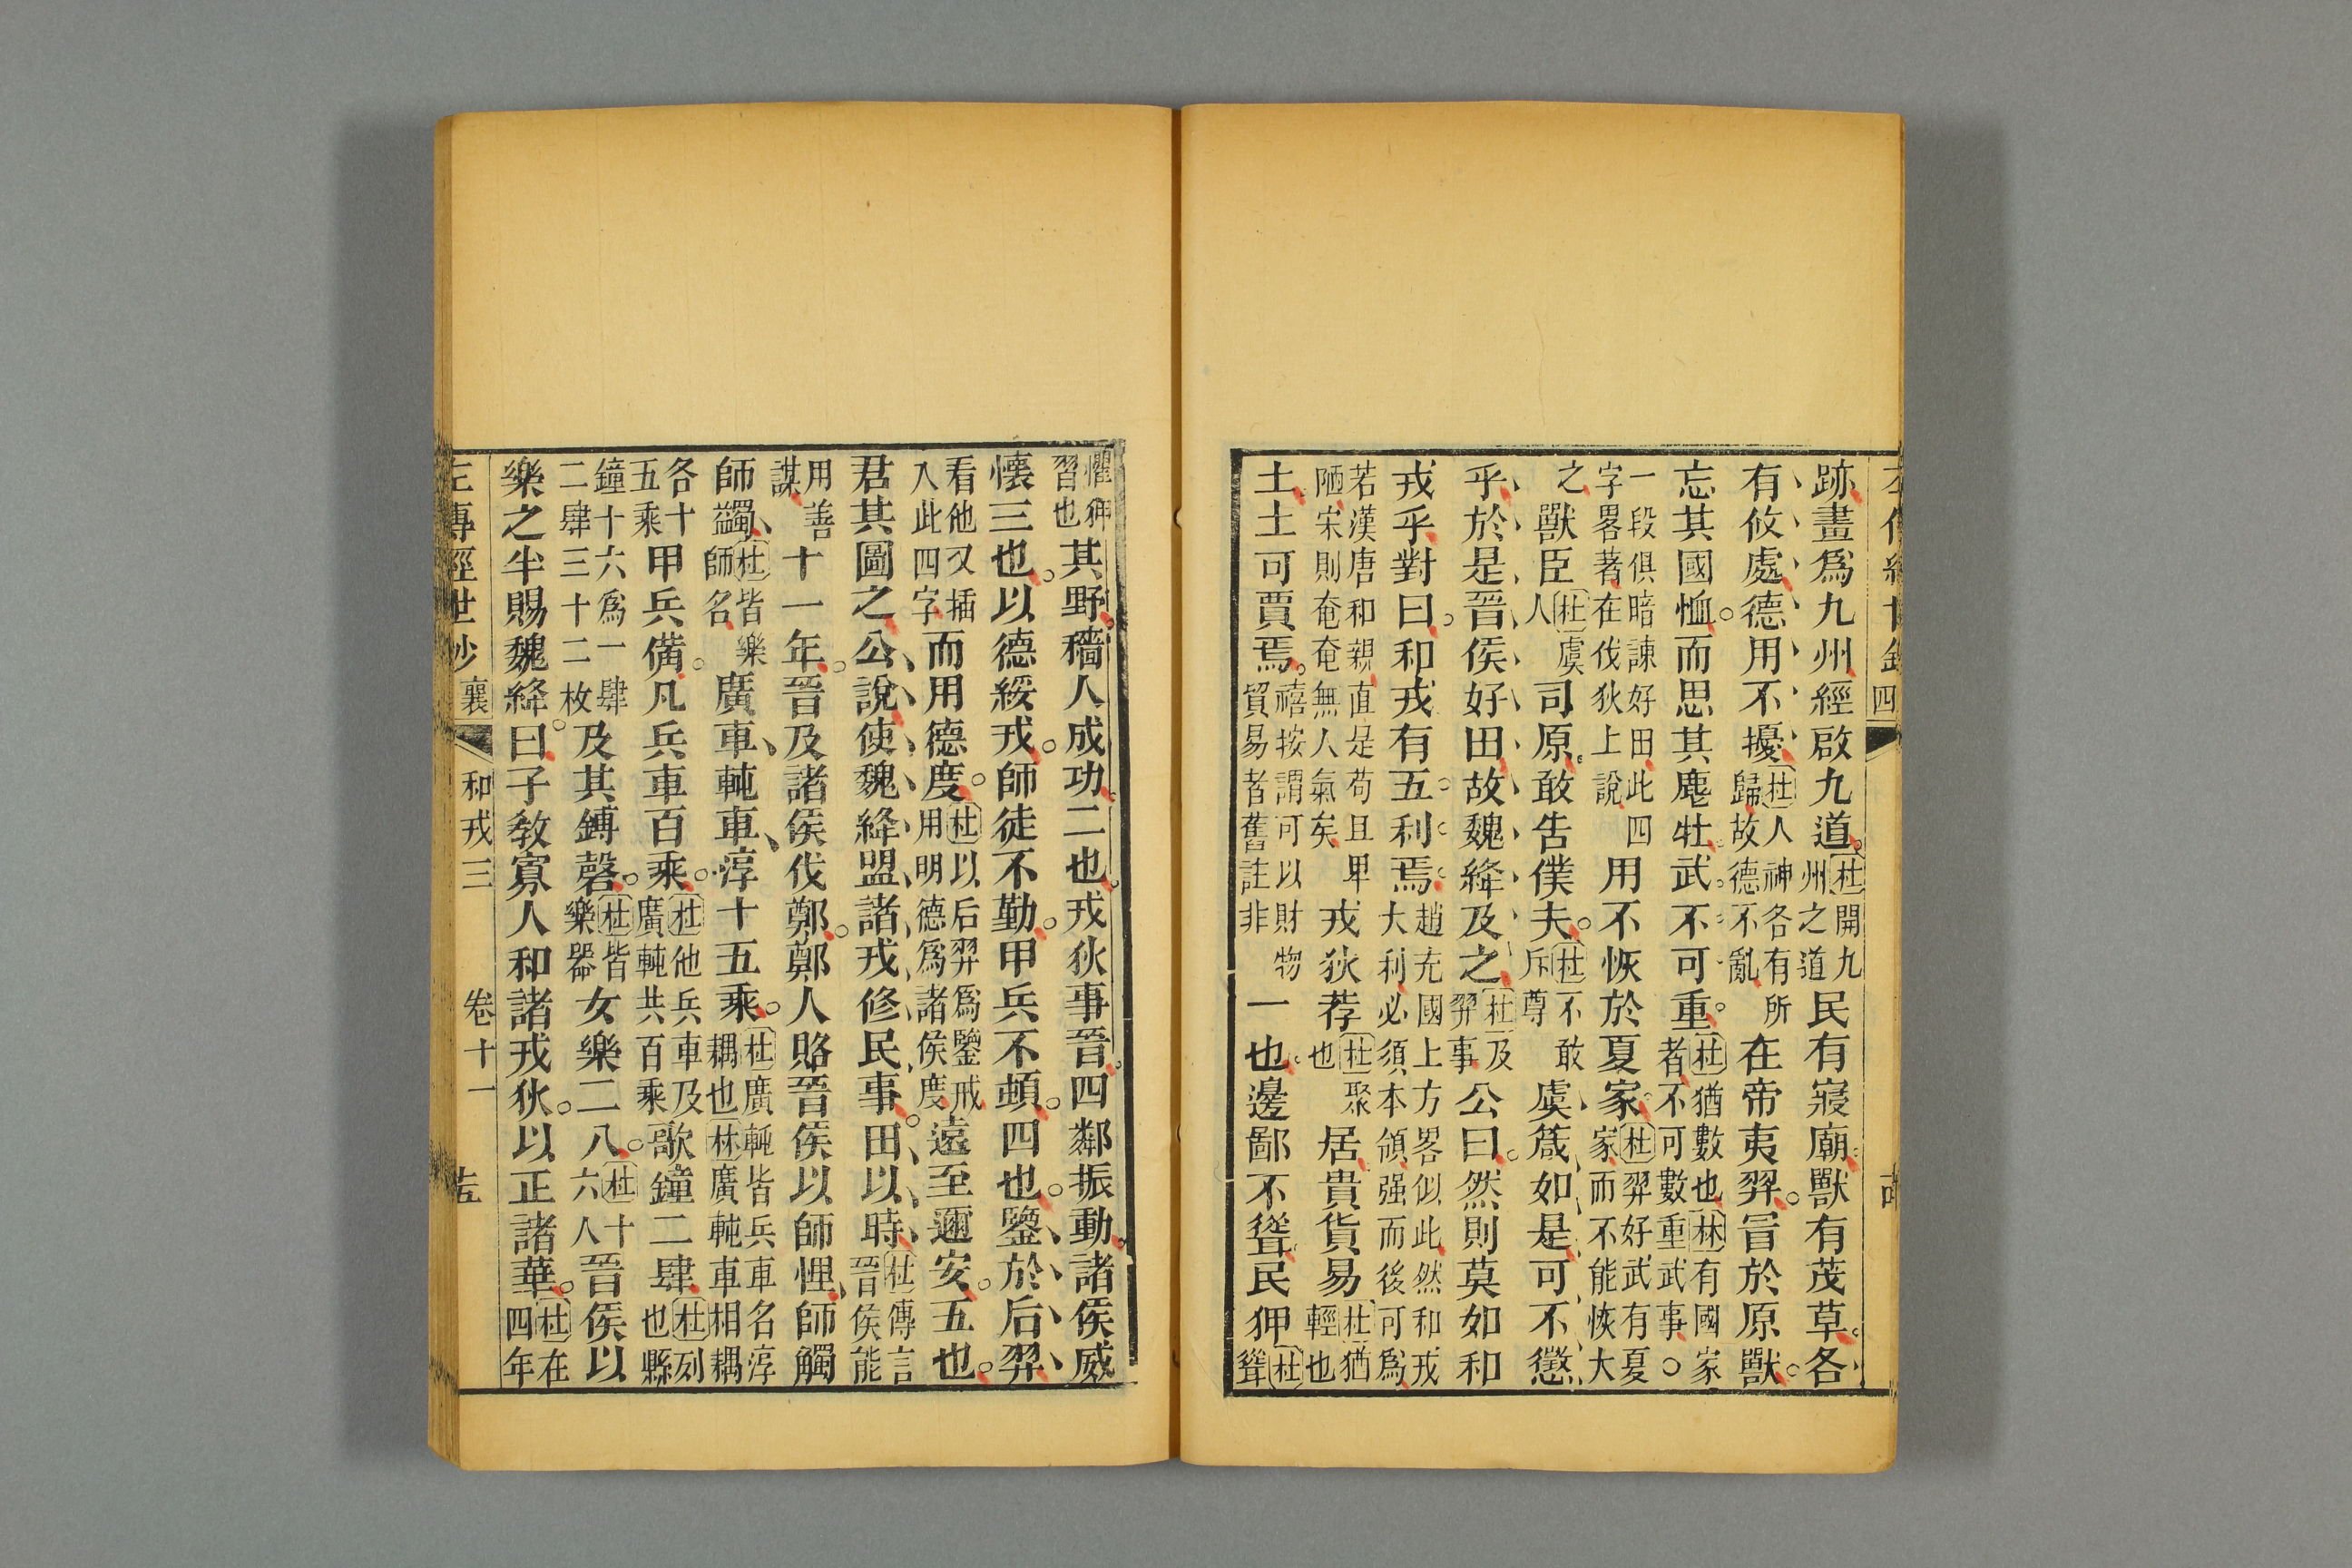 跡畫爲九州經啟九道杜開九州之道民有寢廟獸有茂草各
有攸處德用不擾杜人神各有所歸故德不亂在帝夷羿冒於原獸
忘其國恤而思其麀牡武不可重杜猶數也林有國家者不可數重武事○
一段俱暗諫好田此四字畧著在伐狄上說用不恢於夏家杜羿好武有夏家而不能恢大
之獸臣杜虞人司原敢告僕夫杜不敢斥尊虞箴如是可不懲
乎於是晉侯好田故魏絳及之杜及羿事公曰然則莫如和
戎乎對曰和戎有五利焉趙充國上方畧似此然和戎大利必須本領强而後可爲
若漢唐和親直是苟且卑陋宋則奄奄無人氣矣戎狄荐杜聚也居貴貨易杜猶輕也
土土可賈焉禧按謂可以財物貿易者舊註非一也邊鄙不聳民狎杜聳
懼狎習也其野穡人成功二也戎狄事晉四鄰振動諸侯威
懷三也以德綏戎師徒不勤甲兵不頓四也鑒於后羿
看他又插入此四字而用德度杜以后羿爲鑒戒用明德爲諸侯度遠至邇安五也
君其圖之公說使魏絳盟諸戎修民事田以時杜傳言晉侯能
用善謀十一年晉及諸侯伐鄭鄭人賂晉侯以師悝師觸
師蠲杜皆樂師名廣車軘車淳十五乘杜廣軘皆兵車名淳耦也林廣軘車相耦
各十五乘甲兵備凡兵車百乘杜他兵車及廣軘共百乘歌鐘二肆杜列也縣
鐘十六爲一肆二肆三十二枚及其鎛磬杜皆樂器女樂二八杜十六人晉侯以
樂之半賜魏絳曰子教寡人和諸戎狄以正諸華杜在四年
左傳經世鈔 襄 和戎三 卷十一 十五